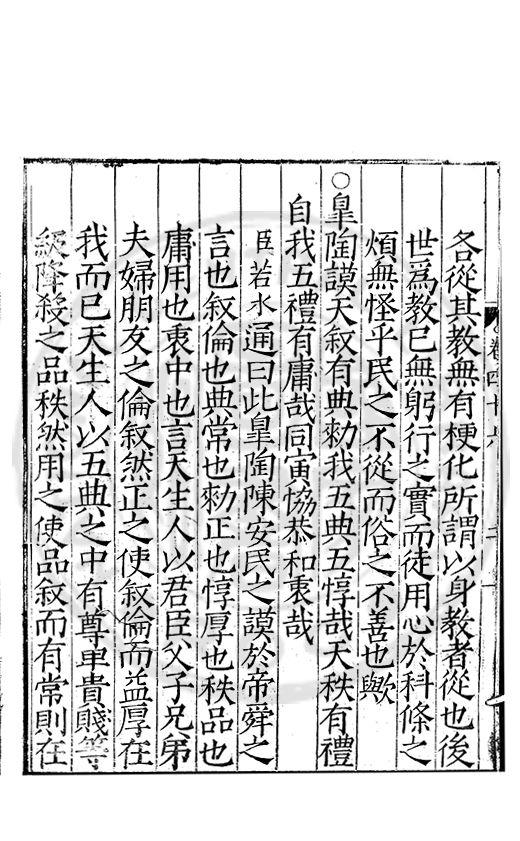 各從其教無有梗化所謂以身教者從也後
世爲教已無躬行之實而徒用心於科條之
煩無怪乎民之不從而俗之不善也歟
○皐陶謨天叙有典勑我五典五惇哉天秩有禮
自我五禮有庸哉同寅恊恭和衷哉
臣若水通曰此皐陶陳安民之謨於帝舜之
言也叙倫也典常也勑正也惇厚也秩品也
庸用也衷中也言天生人以君臣父子兄弟
夫婦朋友之倫叙然正之使叙倫而益厚在
我而已天生人以五典之中有尊卑貴賤等
級降殺之品秩然用之使品叙而有常則在
卷四十六